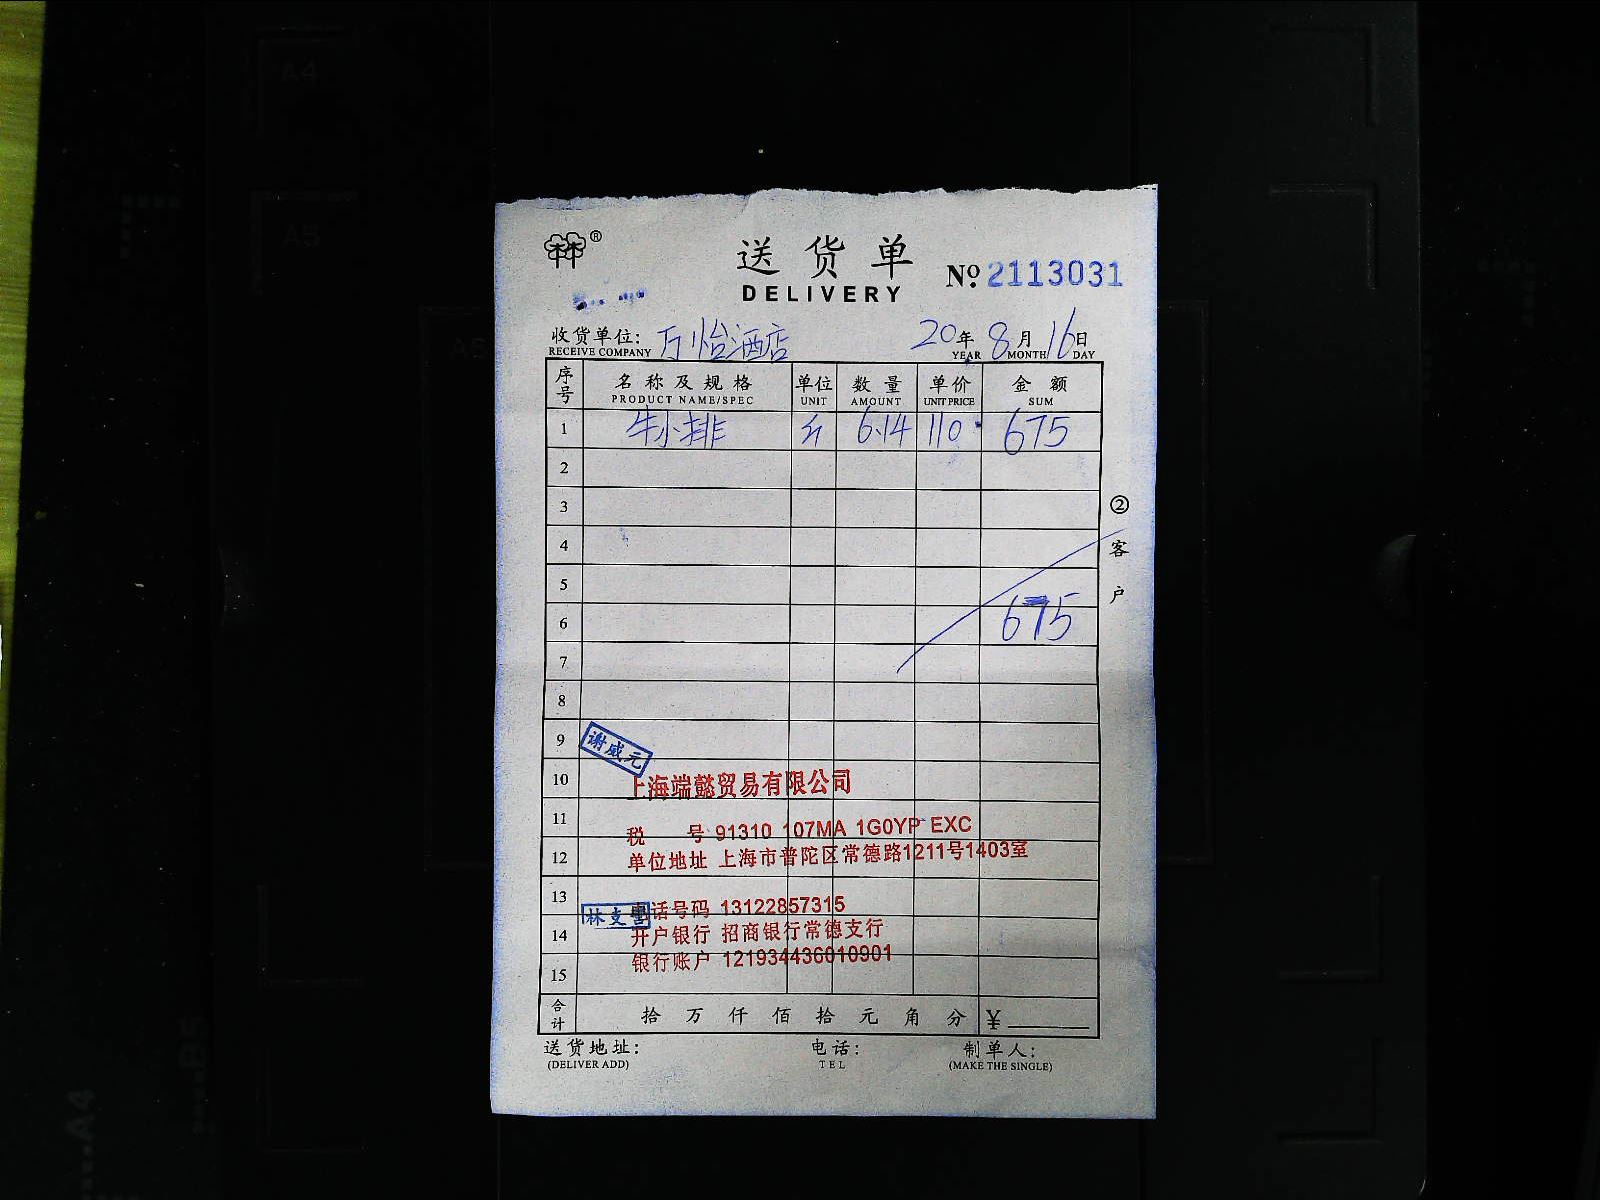 A4
A5
A5
林林®
送货单
DELIVERY
№ 2113031
收货单位: 万怡酒店 20年8月16日
RECEIVE COMPANY YEAR MONTH DAY
序号 名称及规格 单位 数量 单价 金额
PRODUCT NAME/SPEC UNIT AMOUNT UNIT PRICE SUM
1 牛小排 斤 6.14 110 675
2
3
4
5
6 675
7
8
9
10
11
12
13
14
15
② 客户
谢威元
上海端懿贸易有限公司
税 号 91310 107MA 1G0YP EXC
单位地址 上海市普陀区常德路1211号1403室
电话号码 13122857315
开户银行 招商银行常德支行
银行账户 121934436010901
合计 拾 万 仟 佰 拾 元 角 分 ¥
送货地址: 电话: 制单人:
(DELIVER ADD) TEL (MAKE THE SINGLE)
B5
A4